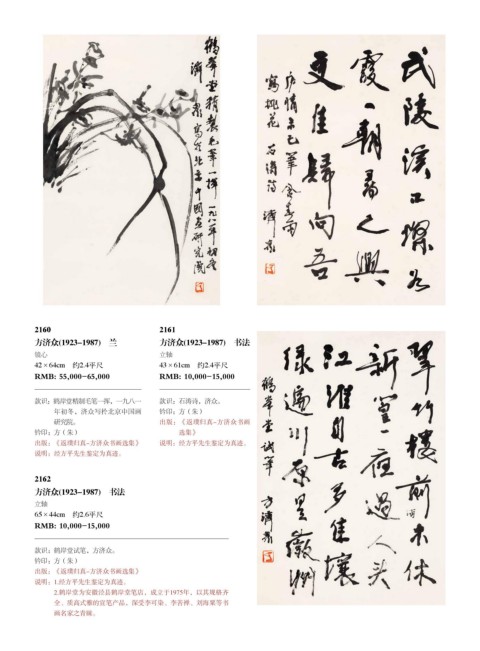 鹤岸堂精製毛笔一挥一九八一年初冬
济众写于北京中国画研究院
武陵溪口灿如
霞一朝寻之兴
更佳归向吾
庐情未已笔含春雨
写桃花 石涛诗 济众
2160
方济众(1923-1987) 兰
镜心
42×64cm 约2.4平尺
RMB: 55,000-65,000
款识:鹤岸堂精制毛笔一挥,一九八一
年初冬,济众写于北京中国画
研究院。
钤印:方(朱)
出版:《返璞归真-方济众书画选集》
说明:经方平先生鉴定为真迹。
2161
方济众(1923-1987) 书法
立轴
43×61cm 约2.4平尺
RMB: 10,000-15,000
款识:石涛诗,济众。
钤印:方(朱)
出版:《返璞归真-方济众书画
选集》
说明:经方平先生鉴定为真迹。
2162
方济众(1923-1987) 书法
立轴
65×44cm 约2.6平尺
RMB: 10,000-15,000
款识:鹤岸堂试笔,方济众。
钤印:方(朱)
出版:《返璞归真-方济众书画选集》
说明:1.经方平先生鉴定为真迹。
2.鹤岸堂为安徽泾县鹤岸堂笔店,成立于1975年,以其规格齐
全、质高式雅的宣笔产品,深受李可染、李苦禅、刘海粟等书
画名家之青睐。
翠竹楼前未休
新篁一座过人头
江淮自古多佳壤
绿遍川原是徽州
鹤岸堂试笔 方济众